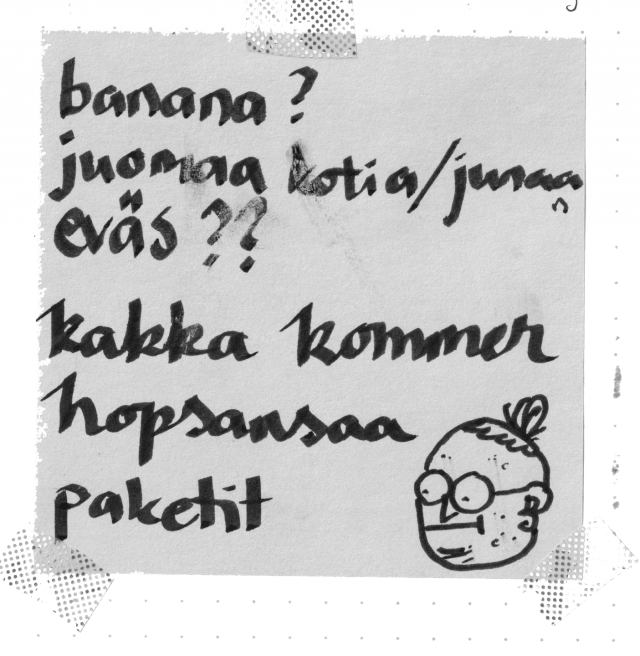 banana ?
juomaa kotia/junaa
eväs ??
kakka kommer
hopsansaa
paketit